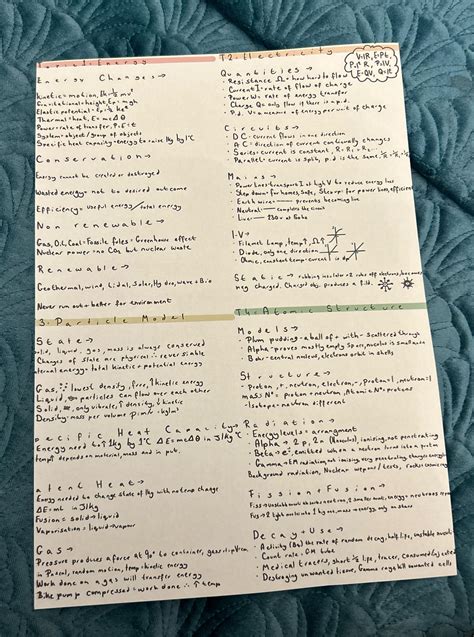 Energy
Energy Changes →
Kinetic = motion, Ek = ½ mv²
Gravitational = height, Ep = mgh
Elastic potential = Ee = ½ ke²
Thermal = heat, E = mcΔθ
Power = rate of transfer, P = E ÷ t
System = object / group of objects
Specific heat capacity = energy to raise 1kg by 1°C
Conservation →
Energy cannot be created or destroyed
Wasted energy = not to desired outcome
Efficiency = useful energy / total energy
Non renewable →
Gas, Oil, Coal = Fossil files = Greenhouse effect
Nuclear power = no CO₂ but nuclear waste
Renewable →
Geothermal, wind, tidal, Solar, Hydro, wave + Bio
Never run out = better for environment
T2 - Electricity
V=IR, E=Pt,
P=I²R, P=IV,
E=QV, Q=It
Quantities →
· Resistance Ω = how hard to flow
· Current I = rate of flow of charge
· Power W = rate of energy transfer
· Charge Q = only flow if there is a p.d.
· P.d. V = a measure of energy per unit of charge
Circuits →
· DC = current flows in one direction
· AC = direction of current continually changes
· Series = current is constant,
· Parallel = current is split, p.d is the same,
Mains →
· Power lines transport I at high V to reduce energy loss
· Step down = for homes, safe, Step up = for power lines, efficient
· Earth wire = prevents becoming live
· Neutral = completes the circuit
· Live = 230v at 50hz
I-V →
· Filament Lamp, temp↑, Ω↑
· Diode, only one direction
· Ohmic, constant temp = current is dp
Static → rubbing insulator
neg charged. Charged obj. produces a field.
3 - Particle Model
State →
solid, liquid, gas, mass is always conserved
Changes of state are physical = reversible
internal energy = total kinetic + potential energy
Gas, lowest density, free, ↑kinetic energy
Liquid, particles can flow over each other
Solid, only vibrate, ↑density, ↓kinetic
Density = mass per volume p = m/v = kg/m³
pecific Heat Capacity →
Energy need to ↑1kg by 1°C ΔE = mcΔθ in J/kg°C
temp↑ depends on material, mass and in put.
atent Heat →
Energy needed to change state of 1kg with no temp change
ΔE = mL in J/kg
Fusion = Solid → liquid
Vaporisation = liquid → vapour
Gas →
Pressure produces a force at 90° to container,
in Pascal, random motion, temp = kinetic energy
Work done on a gas will transfer energy
Bike pump compressed = work done ∴ ↑temp
T4 - Atomic Structure
Models →
· Plum pudding = a ball of + with - scattered through
· Alpha = proves mostly empty space, nucleus is small
· Bohr = central nucleus, electrons orbit in shells
Structure →
· Proton, +, neutron, electron, -, proton = 1, neutron = 1
mass N° = proton + neutron, Atomic N° = protons
· Isotope = neutron different
Radiation →
· Energy levels = arrangement
· Alpha → 2p, 2n (Nucleus), ionising not penetrating
· Beta → e⁻, emitted when a neutron turns into a proton
· Gamma → EM radiation not ionising very penetrating
Background radiation, Nuclear weapons/tests, rocks, cosmic rays
Fission + Fusion →
Decay + Use →
· Activity (Bq) the rate of random decay, half life, unstable
· Count rate = GM tube
· Medical tracers, short ½ life, tracer,
· Destroying unwanted tissue, Gamma rays kill unwanted cells